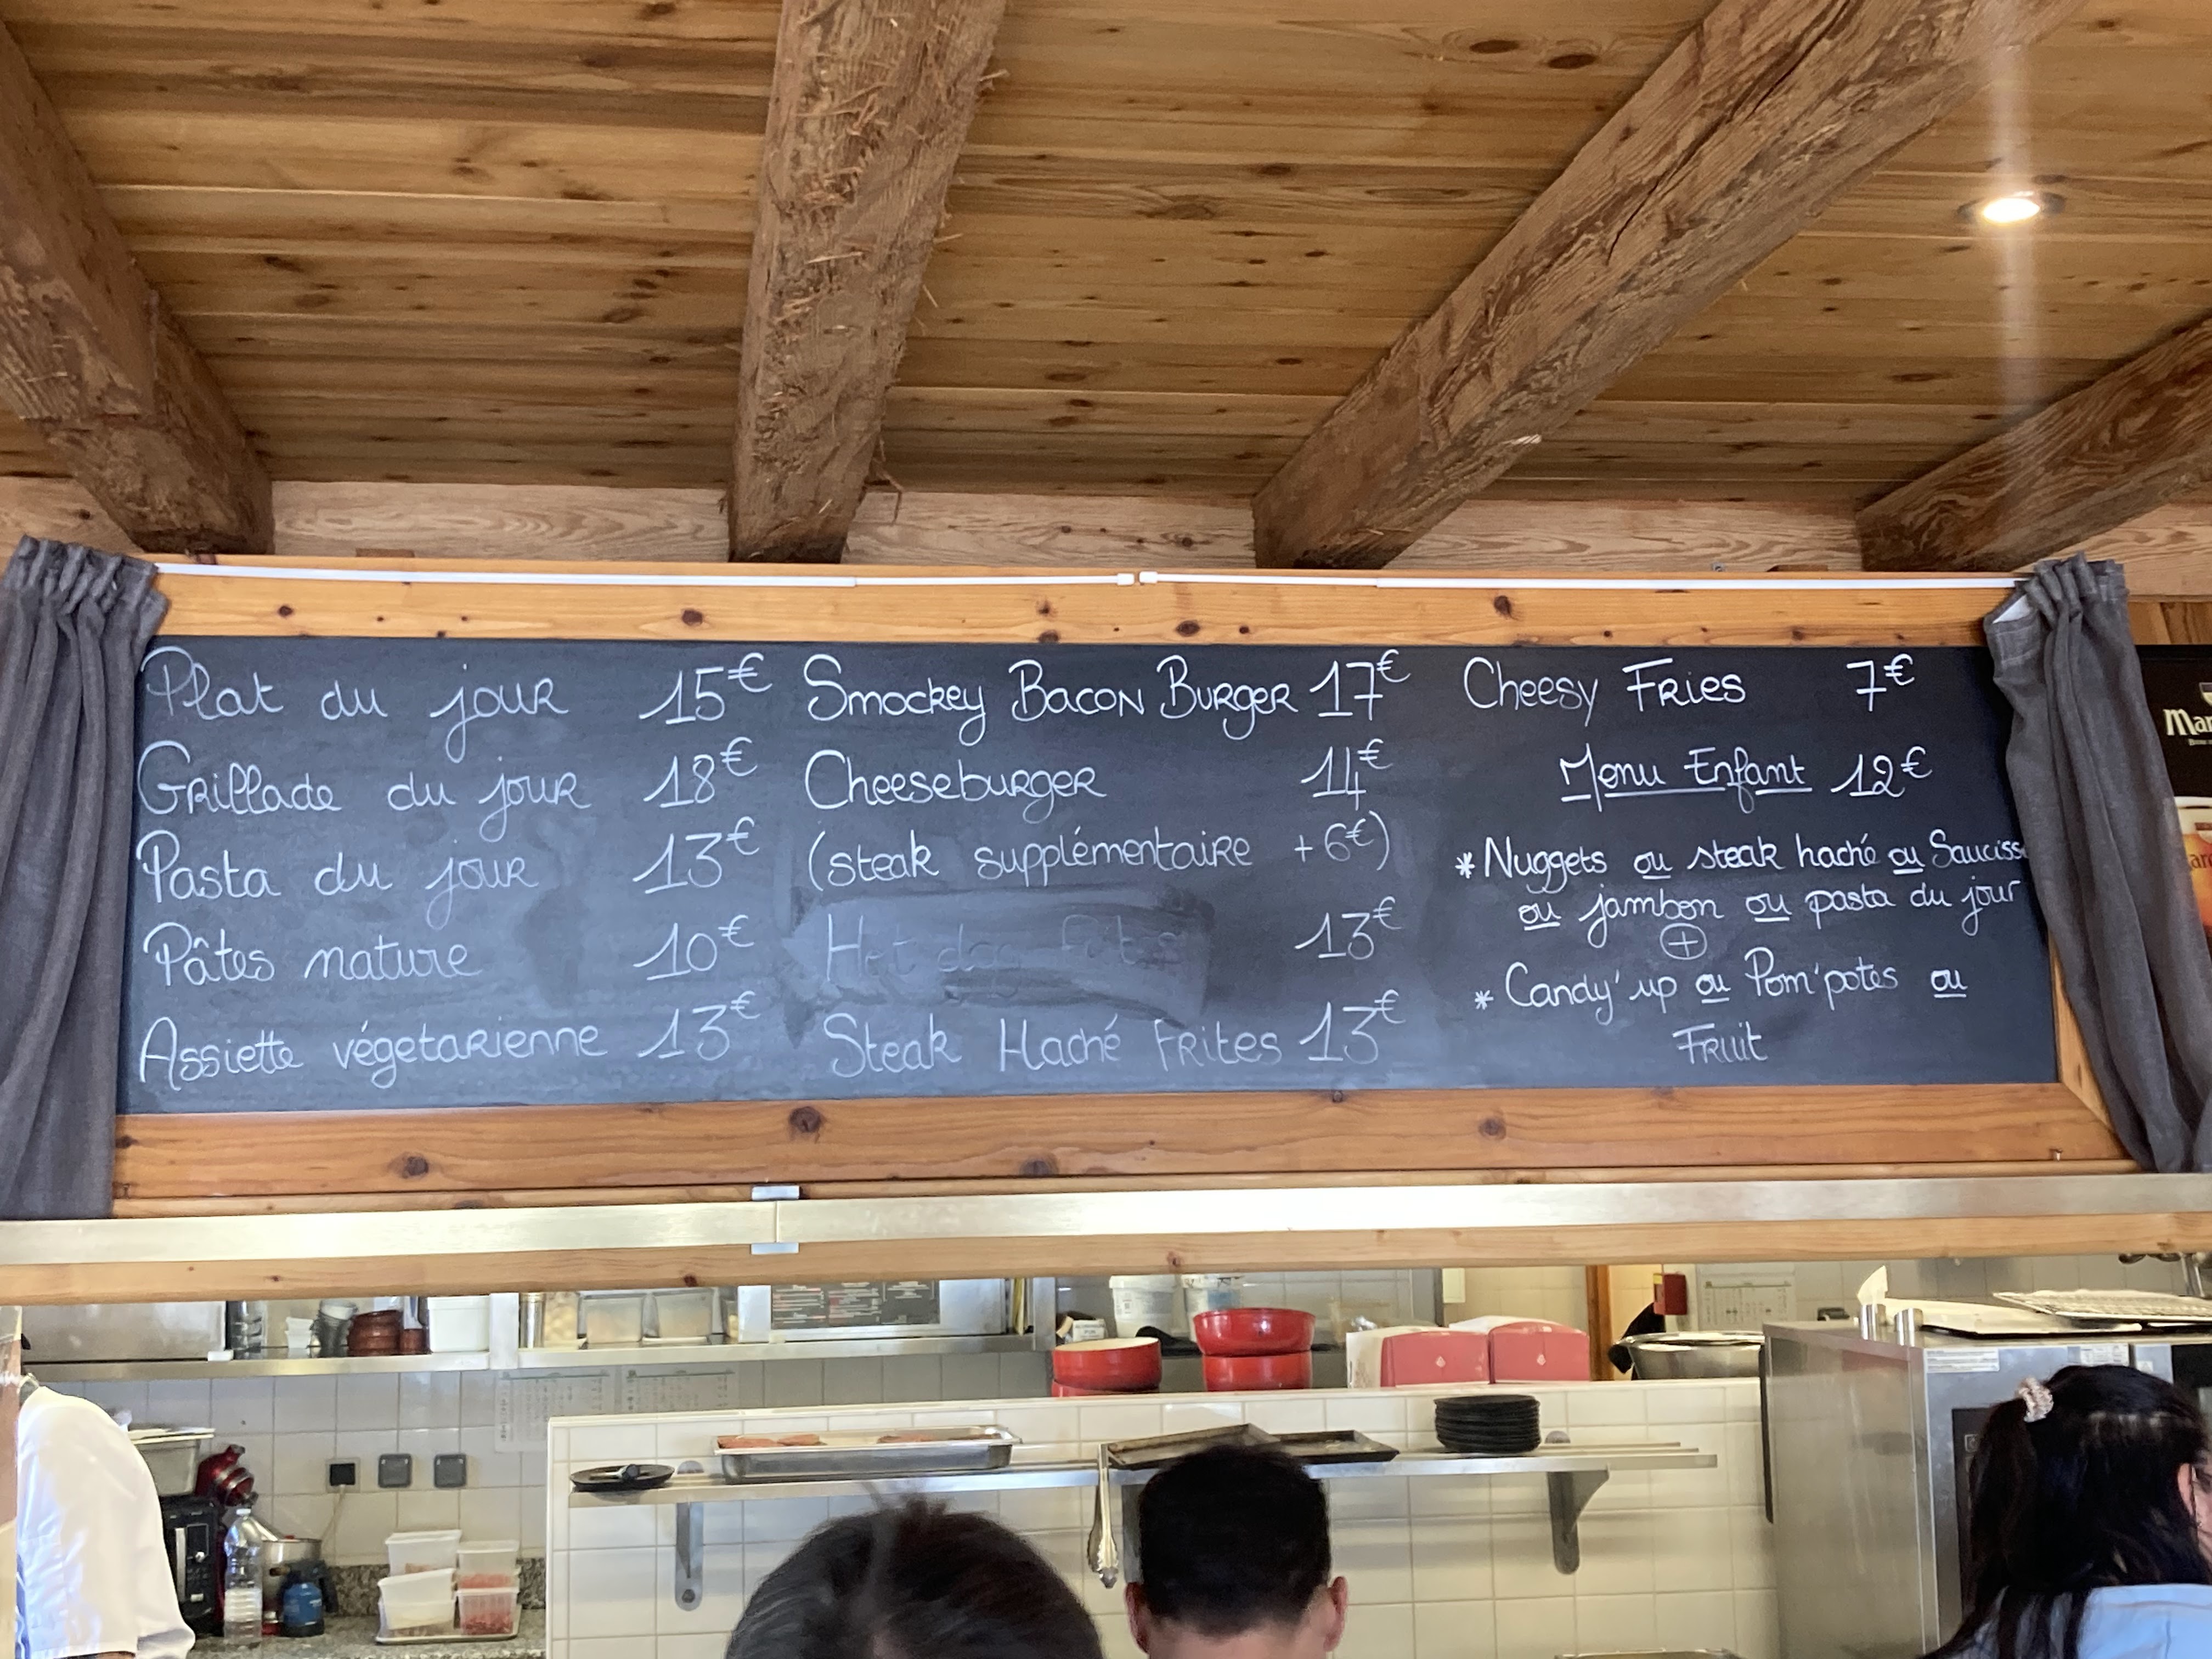 Plat du jour 15€
Grillade du jour 18€
Pasta du jour 13€
Pâtes nature 10€
Assiette végetarienne 13€
Smockey Bacon Burger 17€
Cheeseburger 14€
(steak supplémentaire +6€)
Hot dog frites 13€
Steak Haché Frites 13€
Cheesy Fries 7€
Menu Enfant 12€
* Nuggets ou steak haché ou Sauciss
ou jambon ou pasta du jour
+
* Candy'up ou Pom'potes ou
Fruit
Mar